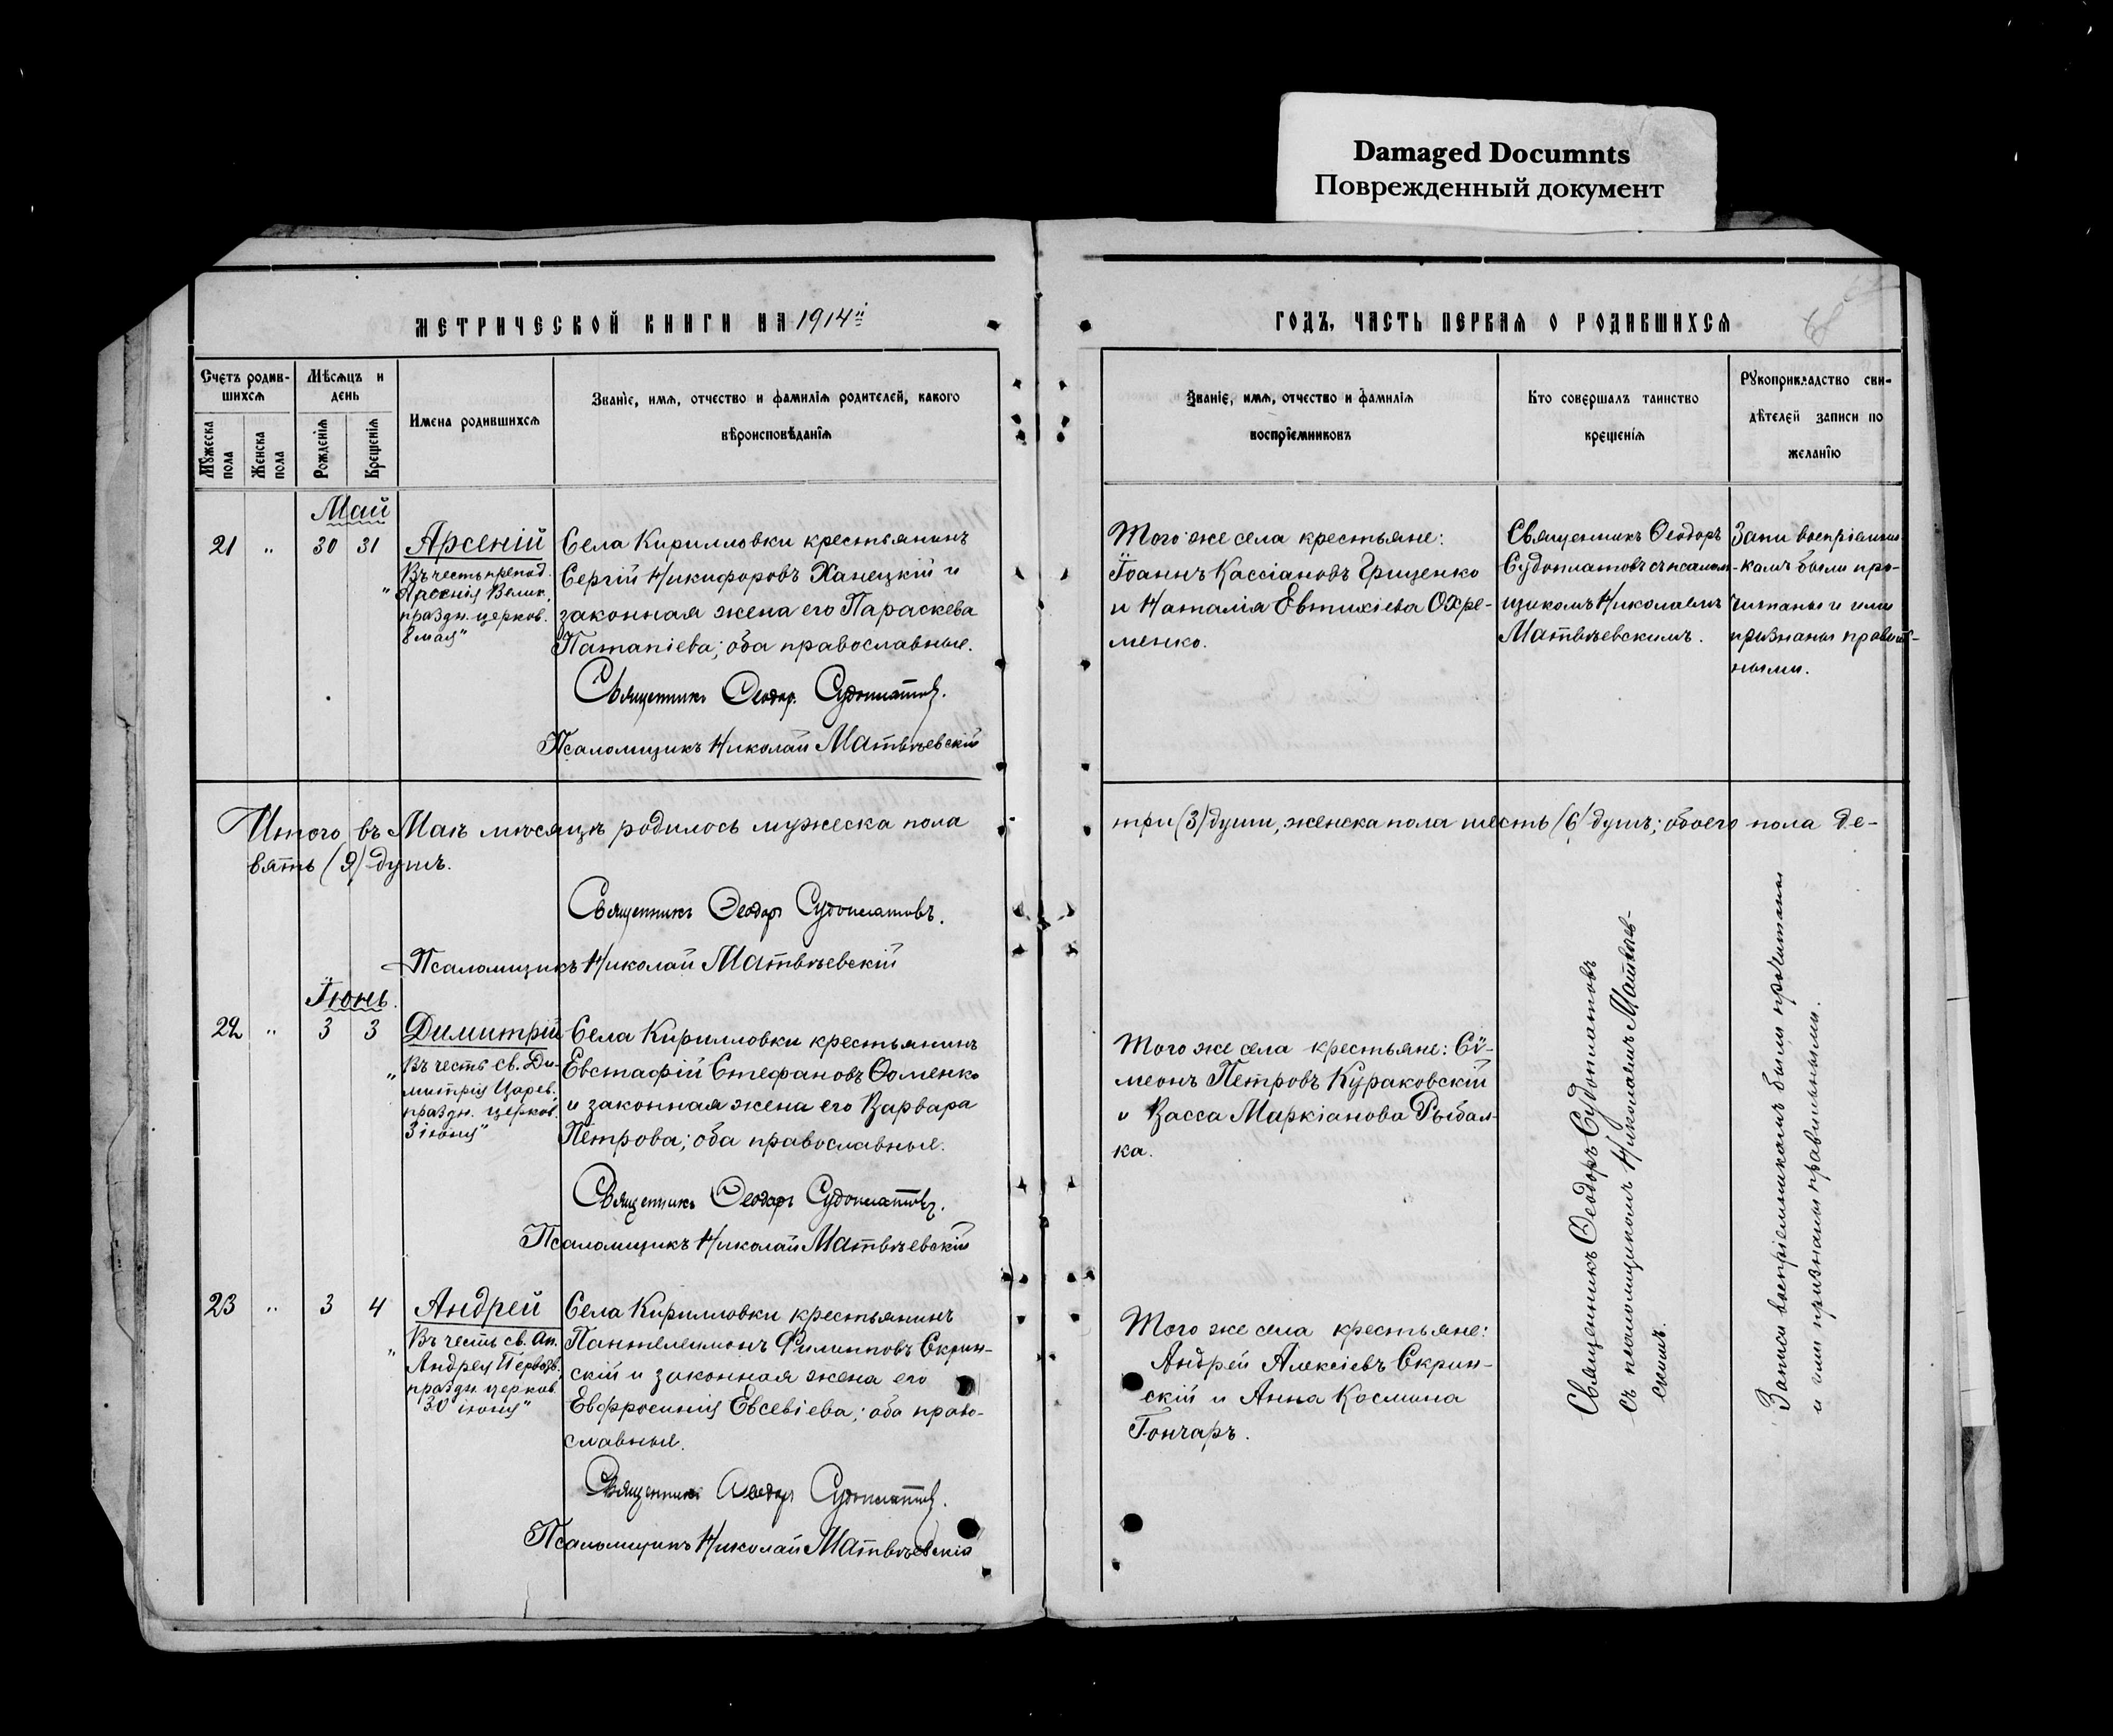 Damaged Documnts
Поврежденный документ
МЕТРИЧЕСКОЙ КНИГИ НА 1914й
Счетъ родив-
шихся
Мѣсяцъ и
день
Мужеска
пола
Женска
пола
Рожденія
Крещенія
Имена родившихся
Званіе, имя, отчество и фамилія родителей, какого
вѣроисповѣданія
Май
21 " 30 31
Арсеній
Въ честь препод.
"Арсенія Велик.,
праздн. церков.
8 мая"
Села Кирилловки крестьянинъ
Сергій Никифоровъ Ханецкій и
законная жена его Параскева
Патапіева; оба православные.
Священникъ Ѳеодоръ Судоплатовъ.
Псаломщикъ Николай Матвѣевскій
Итого въ Маѣ мѣсяцѣ родилось мужеска пола
вять (9) душъ.
Священникъ Ѳеодоръ Судоплатовъ.
Псаломщикъ Николай Матвѣевскій
Іюнь.
22 " 3 3
Димитрій
"Въ честь св. Ди-
митрія Царев.,
праздн. церков.
3 іюня"
Села Кирилловки крестьянинъ
Евстафій Стефановъ Ѳоменко
и законная жена его Варвара
Петрова; оба православные.
Священникъ Ѳеодоръ Судоплатовъ.
Псаломщикъ Николай Матвѣевскій
23 " 3 4
Андрей
"Въ честь св. Ап.
Андрея Первозв.,
праздн. церков.
30 іюня"
Села Кирилловки крестьянинъ
Пантелеимонъ Филипповъ Скрин-
скій и законная жена его
Евфросинія Евсевіева; оба право-
славные.
Священникъ Ѳеодоръ Судоплатовъ.
Псаломщикъ Николай Матвѣевскій
ГОДЪ, ЧАСТЬ ПЕРВАЯ О РОДИВШИХСЯ
68
Званіе, имя, отчество и фамилія
воспріемниковъ
Кто совершалъ таинство
крещенія
Рукоприкладство сви-
дѣтелей записи по
желанію
Того же села крестьяне:
Іоаннъ Кассіановъ Гриценко
и Наталія Евтихіева Охре-
менко.
Священникъ Ѳеодоръ
Судоплатовъ съ псалом-
щикомъ Николаемъ
Матвѣевскимъ.
воспріемни-
камъ были про-
читаны и ими
признаны правиль-
ными.
три (3) души, женска пола шесть (6) душъ; обоего пола де-
Того же села крестьяне: Сѵ-
меонъ Петровъ Кураковскій
и Васса Маркіанова Рыбал-
ка.
Того же села крестьяне:
Андрей Алексіевъ Скрин-
скій и Анна Космина
Гончаръ.
Священникъ Ѳеодоръ Судоплатовъ
съ псаломщикомъ Николаемъ Матвѣев-
скимъ.
Записи воспріемникамъ были прочитаны
и ими признаны правильными.